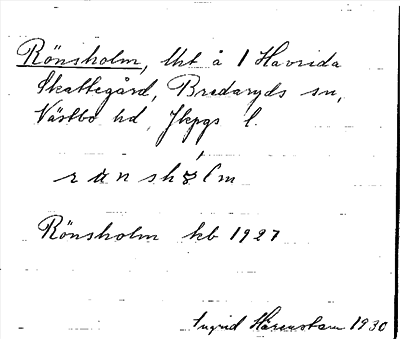 Rönsholm, lht å 1 Havrida
Skattegård, Bredaryds sn,
Västbo hd, Jkpgs l.
Rönsholm kb 1927
Ingrid Härenstam 1930